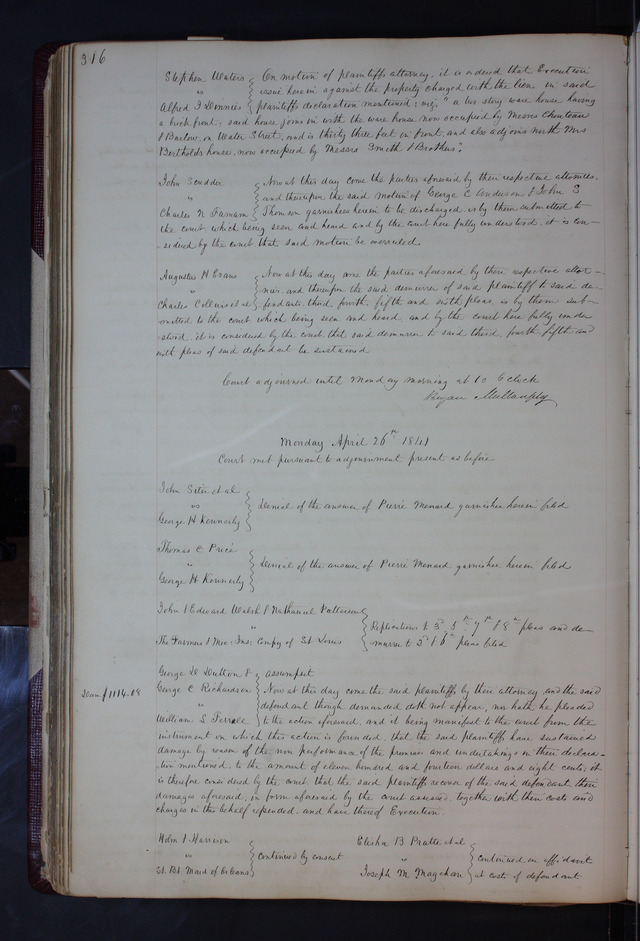 316
Stephen Waters } On motion of plaintiffs attorney, it is ordered that Execution
vs issue herein against the property charged with the lien in said
Alfred J Downies plaintiffs declaration mentioned; viz; "a two story ware house having
a brick front; said house joins in with the ware house now occupied by Messrs Chouteau
& Barlow, on Water Street, and is thirty three feet in front, and also adjoins north Mrs
Bertholds house, now occupied by Messrs Smith & Brothers".
John Scudder } Now at this day come the parties aforesaid by their respective attornies,
vs and thereupon the said motion of George C Anderson & John S
Charles N Farnam Thomson garnishees herein to be discharged is by them submitted to
the court which being seen and heard and by the court here fully understood, it is con-
-sidered by the court that said motion be overruled.
Augustus H Evans } Now at this day come the parties aforesaid by their respective attor-
vs neies and thereupon the said demurrer of said plaintiff to said de-
Charles Collins et al fendants third, fourth, fifth and sixth pleas, is by them sub-
mitted to the court which being seen and heard, and by the court here fully under
stood, it is considered by the court that said demurrer to said third, fourth, fifth and
sixth pleas of said defendant be sustained
Court adjourned until Monday morning at 10 O'clock
Bryan Mullanphy
Monday April 26th 1841
Court met pursuant to adjournment present as before
John Siter et al
vs } Denial of the answer of Pierre Menard garnishee herein filed
George H Kennerly
Thomas C Price
vs } Denial of the answer of Pierre Menard garnishee herein filed
George H Kennerly
John & Edward Walsh & Nathaniel Patterson
vs } Replications to 3d 5th 7th & 8th pleas and de-
The Farmers & Mec: Ins: Compy of St Louis murrer to 2d & 6th pleas filed
George D Dutton & } assumpsit
Dam $1114.08 George C Richardson Now at this day come the said plaintiffs by their attorney and the said
vs defendant though demanded doth not appear, nor hath he pleaded
William S to the action aforesaid, and it being manifest to the court from the
instrument on which this action is founded, that the said plaintiffs have sustained
damage by reason of the non performance of the promises and undertakings in their declara-
-tion mentioned, to the amount of eleven hundred and fourteen dollars and eight cents, it
is therefore considered by the court, that the said plaintiffs recover of the said defendant their
damages aforesaid, in form aforesaid by the court assessed, together with their costs and
charges in this behalf expended, and have thereof Execution.
Holm & Harrison Elisha B Pratte et al
vs } continued by consent vs } continued on affidavit
St. Bt. Maid of Orleans Joseph M Magehan at costs of defendant